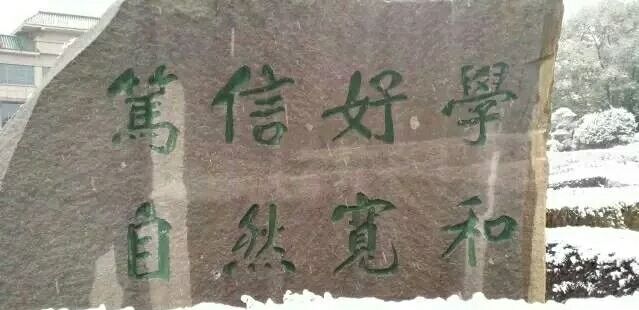 篤信好學
自然寬和